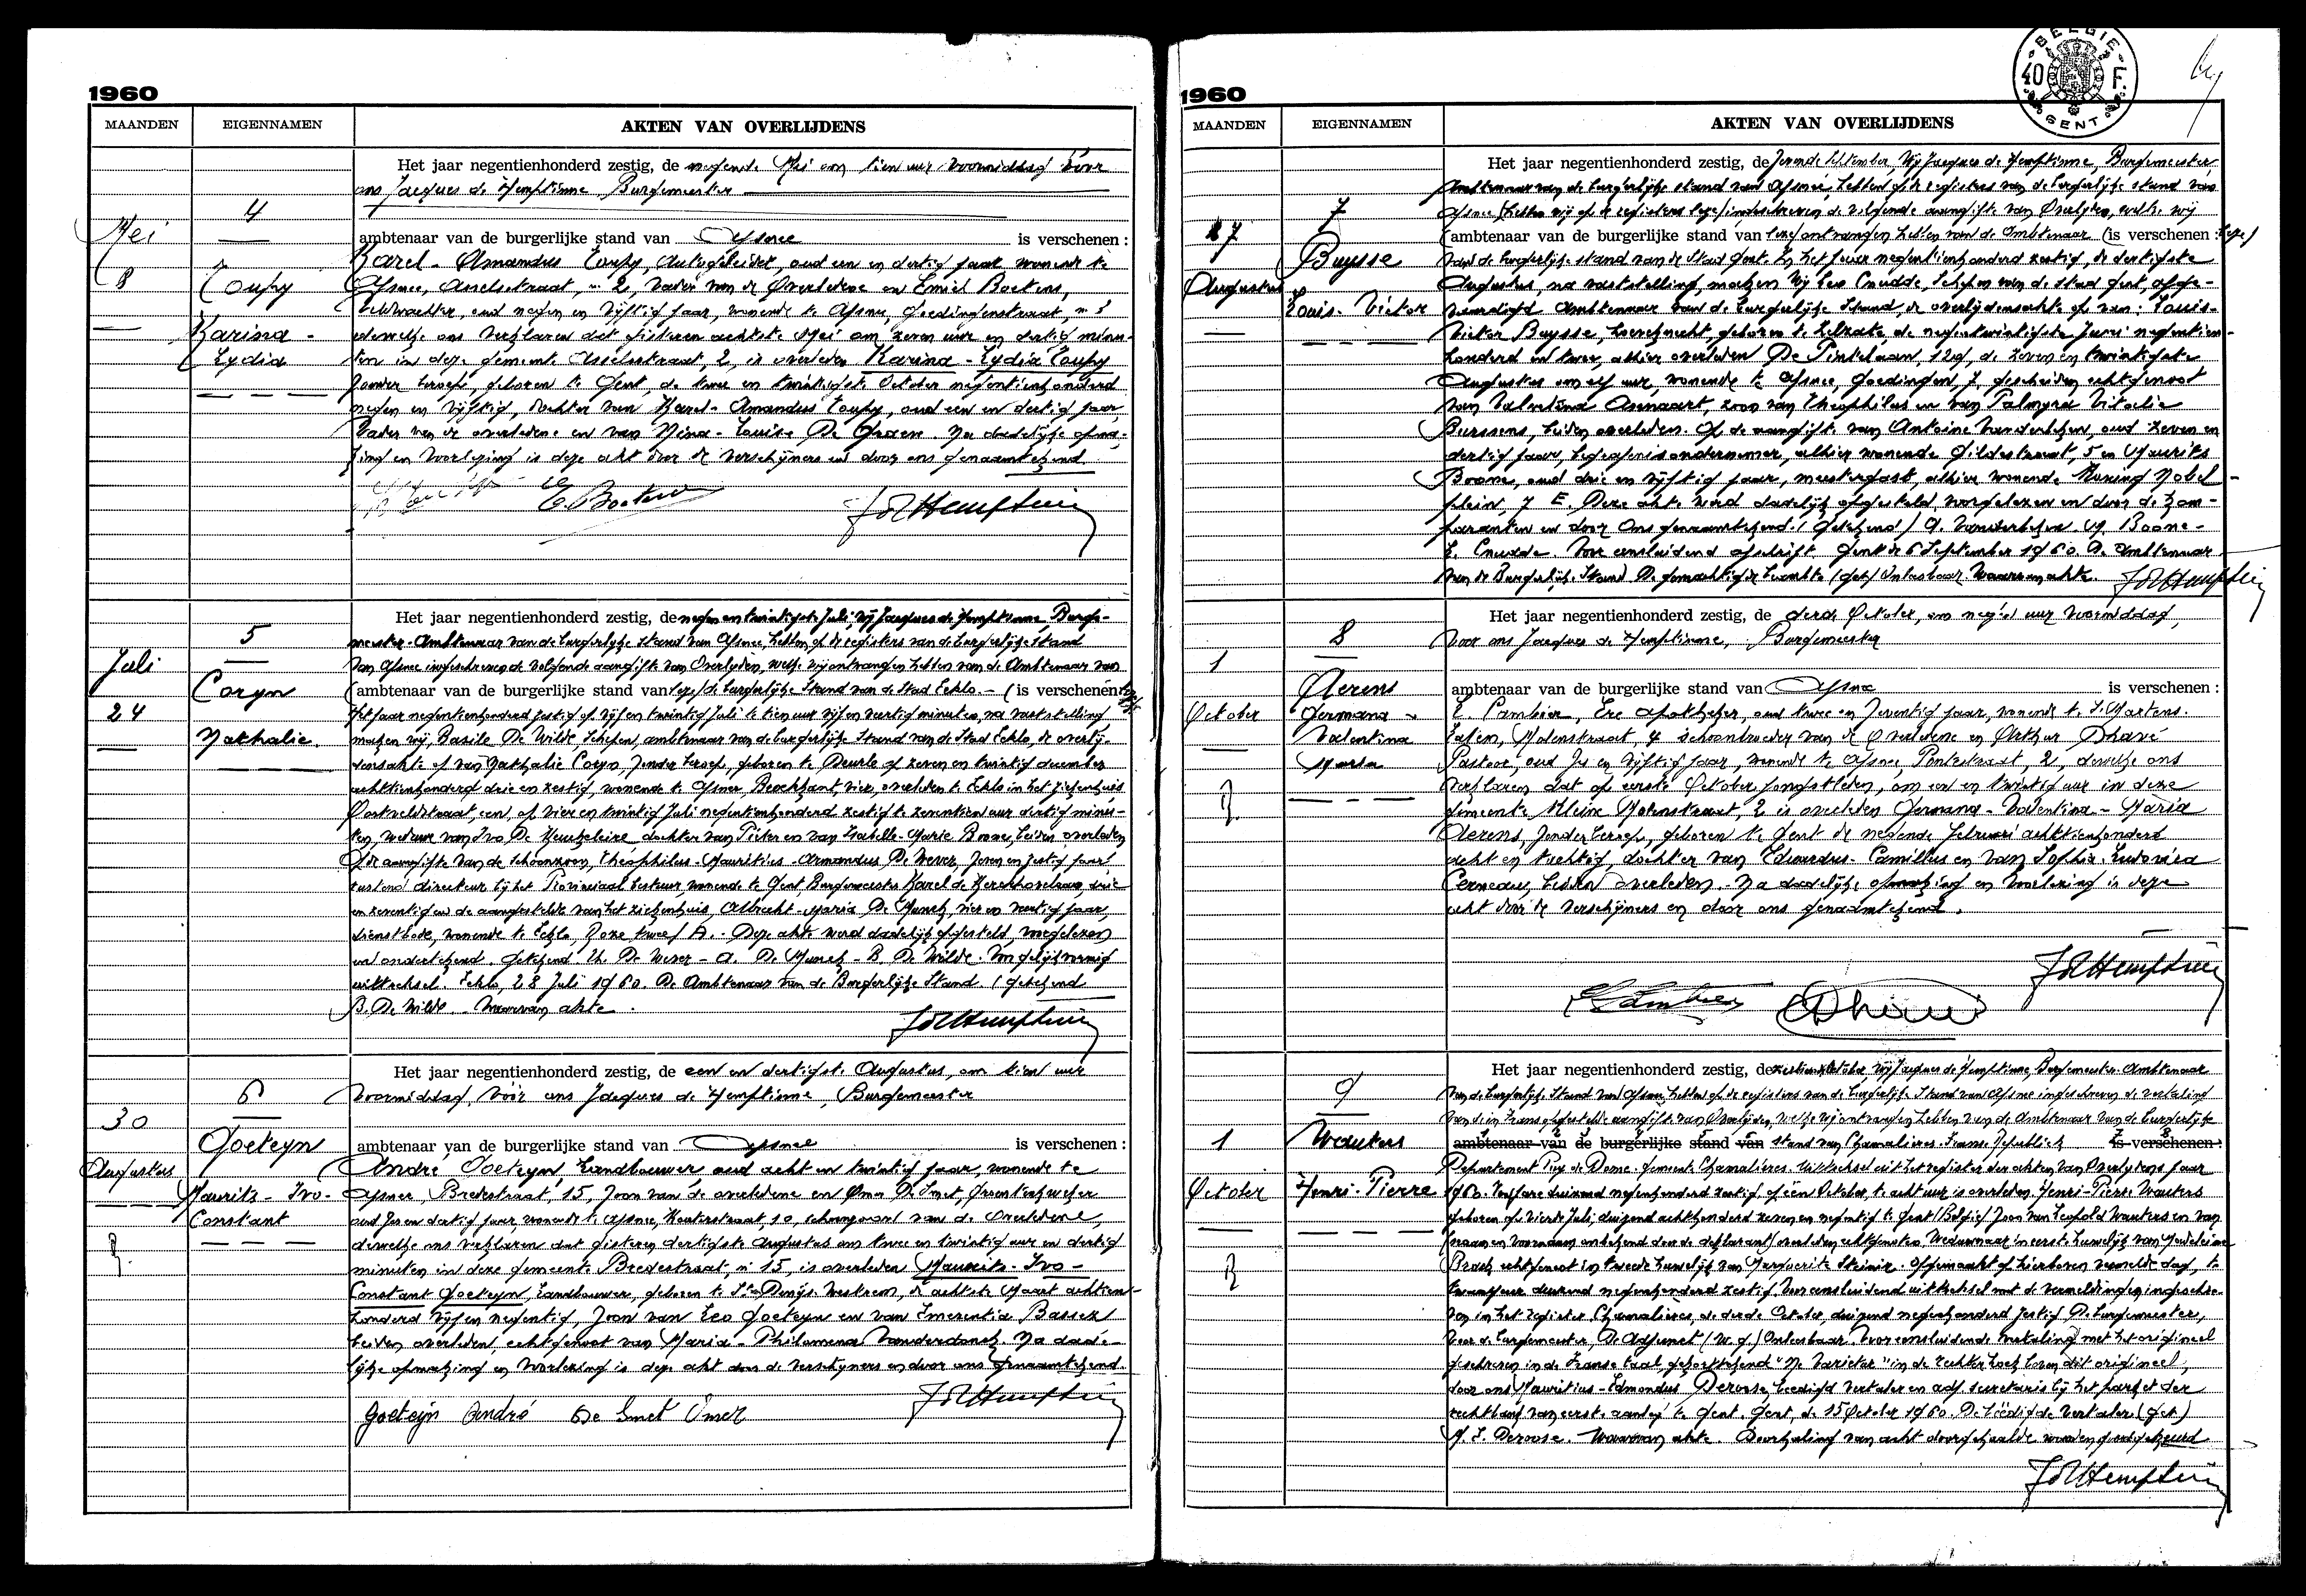 1960
MAANDEN EIGENNAMEN AKTEN VAN OVERLIJDENS
Het jaar negentienhonderd zestig, de negende Mei om tien uur voormiddag voor
ons Jacques de Hemptinne, Burgemeester
4
Mei
8
Coupy
Karina -
Lydia
ambtenaar van de burgerlijke stand van Afsnee is verschenen :
Karel - Amandus Coupy, autogeleider, oud een en dertig jaar wonende te
Afsnee, Asselsstraat, n° 2, vader van de Overledene en Emiel Boetens,
veldwachter, oud negen en vijftig jaar, wonende te Afsnee, Goedingenstraat, n°
dewelke ons verklaren dat gisteren achtste Mei om zeven uur en dertig minu-
ten in deze gemeente Asselsstraat, 2, is overleden Karina - Lydia Coupy
zonder beroep, geboren te Gent, de twee en twintigste October negentienhonderd
negen en vijftig, dochter van Karel - Amandus Coupy, oud een en dertig jaar,
Vader van de overledene en van Nina - Louisa De Graeve. Na dadelijke opma-
king en voorlezing is deze akt door de verschijners en door ons genaamtekend.
E. Boetens
Het jaar negentienhonderd zestig, de negen en twintigste Juli, Wij Jacques de Hemptinne, Burge-
meester - Ambtenaar van de burgerlijke stand van Afsnee, hebben op de registers van de burgerlijke stand
van Afsnee ingeschreven de volgende aangifte van Overlijden, welke wij ontvangen hebben van de Ambtenaar van
5
Juli
24
Coryn
Nathalie.
ambtenaar van de burgerlijke stand van de burgerlijke Stand van de Stad Eeklo. - (is verschenen
Het jaar negentienhonderd zestig op vijf en twintig Juli te tien uur vijf en veertig minuten, na vaststelling
maken wij, Basile De Wilde Schepen, ambtenaar van de burgerlijke Stand van de Stad Eeklo, de overlij-
densakte op van Nathalie Coryn, zonder beroep, geboren te Deurle op zeven en twintig december
achttienhonderd drie en zestig, wonende te Afsnee, Broekkant, vier, overleden te Eeklo in het ziekenhuis
Oostveldstraat, een, op vier en twintig Juli negentienhonderd zestig te zeventien uur dertig minu-
ten, weduwe van Ivo De Keukeleire, dochter van Pieter en van Isabelle - Marie Boone, beiden overleden
Op de aangifte van de schoonzoon, Theophilus - Mauritius - Armandus De Wever, zeven en zestig jaar,
rustend directeur bij het Provinciaal bestuur, wonende te Gent, Burgemeester Karel de Kerchovelaan, drie
en zeventig en de aangestelde van het ziekenhuis, Albrecht - Maria De Munck, vier en veertig jaar,
dienstbode, wonende te Eeklo, Roze twee / A. - Deze akte werd dadelijk opgesteld, voorgelezen
en ondertekend. getekend Th. De Wever - A. De Munck - B. De Wilde. Voor gelijkvormig
uittreksel. Eeklo, 28 Juli 1960. De Ambtenaar van de Burgerlijke Stand. (getekend
B. De Wilde. Waarvan akte.
Het jaar negentienhonderd zestig, de een en dertigste Augustus, om tien uur
voormiddag, vóór ons Jacques de Hemptinne, Burgemeester
6
30
Augustus
Goeteyn
Maurits - Ivo -
Constant
ambtenaar van de burgerlijke stand van Afsnee is verschenen :
André Goeteyn, Landbouwer, oud acht en twintig jaar, wonende te
Afsnee, Bredestraat, 15, zoon van de overledene en Omer De Smet,
oud zes en dertig jaar, wonende te Afsnee, Kouterstraat, 10, schoonzoon van de Overledene,
dewelke ons verklaren dat gisteren dertigste Augustus om twee en twintig uur en dertig
minuten in deze gemeente Bredestraat, n° 15, is overleden Maurits - Ivo -
Constant Goeteyn, Landbouwer, geboren te St. Denijs - Westrem, de achtste Maart achttien-
honderd vijf en negentig, zoon van Leo Goeteyn en van Emerentia Basseel
beiden overleden, echtgenoot van Maria - Philomena Vanderdonck. Na dade-
lijke opmaking en voorlezing is deze akt door de verschijners en door ons genaamtekend.
Goeteyn André De Smet Omer
1960
BELGIE
40 F.
GENT
MAANDEN EIGENNAMEN AKTEN VAN OVERLIJDENS
Het jaar negentienhonderd zestig, de zevende September, Wij Jacques de Hemptinne, Burgemeester
Ambtenaar van de burgerlijke stand van Afsnee, hebben op de registers van de burgerlijke stand van
Afsnee (hebben wij op de registers ingeschreven de volgende aangifte van Overlijden, welke wij
7
27
Augustus
Buysse
Louis - Victor
ambtenaar van de burgerlijke stand van ontvangen hebben van de Ambtenaar (is verschenen :
van de burgerlijke stand van de Stad Gent. In het jaar negentienhonderd zestig, de dertigste
Augustus, na vaststelling, maken Wij Leo Cnudde, Schepen van de stad Gent, afge-
vaardigd Ambtenaar van de burgerlijke Stand, de overlijdensakte op van : Louis -
Victor Buysse, geboren te Zelzate, de negentwintigste Juni negentien-
honderd en twee, alhier overleden De Pintelaan, 129, de zeven en twintigste
Augustus om elf uur, wonende te Afsnee, Goedingen, 7, gescheiden echtgenoot
van Valentina Asnaert, zoon van Theophilus en van Palmyra Vitalie
Burssens, beiden overleden. Op de aangifte van Antoine Vanderkehen, oud zeven en
dertig jaar, begrafenisondernemer, alhier wonende Gildestraat, 5 en Maurits
Boone, oud drie en vijftig jaar, meestergast, alhier wonende Koning Nobel -
plein, 7 E. Deze akte werd dadelijk opgesteld, voorgelezen en door de kom-
paranten en door Ons genaamtekend. (Getekend) M. Boone -
L. Cnudde. Voor eensluidend afschrift Gent de 6 September 1960. De Ambtenaar
van de Burgerlijke Stand De gemachtigde beambte (get) Onleesbaar. Waarvan akte.
Het jaar negentienhonderd zestig, de derde October, om negen uur voormiddag,
voor ons Jacques de Hemptinne, Burgemeester
8
1
October
Aerens
Germana -
Valentina
Maria
ambtenaar van de burgerlijke stand van Afsnee is verschenen :
E. Cambier, Ere apotheker, oud twee en zeventig jaar, wonende te St. Martens -
Latem, Molenstraat, 4 schoonbroeder van de Overledene en Arthur Dhavé
Pastoor, oud zes en vijftig jaar, wonende te Afsnee, Pontestraat, 2, dewelke ons
verklaren dat op eerste October jongstleden, om een en twintig uur in deze
gemeente Kleine Molenstraat, 2 is overleden Germana - Valentina - Maria
Aerens, zonder beroep, geboren te Gent de negende Februari achttienhonderd
acht en tachtig, dochter van Eduardus - Camillus en van Sophia - Ludovica
Cerneau, beiden overleden. - Na dadelijke opmaking en voorlezing is deze
akt door de verschijners en door ons genaamtekend.
Het jaar negentienhonderd zestig, de zestien October, Wij Jacques de Hemptinne, Burgemeester - Ambtenaar
van de burgerlijke Stand van Afsnee, hebben op de registers van de burgerlijke Stand van Afsnee ingeschreven de vertaling
van de in Frans opgestelde aangifte van Overlijden, welke wij ontvangen hebben van de Ambtenaar van de burgerlijke
9
1
October
Wauters
Henri - Pierre
ambtenaar van de burgerlijke stand van stand van Chamalières. Franse Republiek is verschenen :
Departement Puy de Dome - gemeente Chamalières. Uittreksel uit het register der akten van Overlijdens jaar
1960. Ten jare duizend negenhonderd zestig, op één October, te acht uur is overleden Henri - Pierre Wauters
geboren op vierde Juli, duizend achthonderd zeven en negentig te Gent (België) zoon van Leopold Wauters en van
(naam en voornamen onbekend door de deklarant) overleden echtgenoten, Weduwnaar in eerste huwelijk van Madeleine
echtgenoot in tweede huwelijk van Marguerite Steinier. Opgemaakt op hierboven vermelde dag, te
duizend negenhonderd zestig, Voor eensluidend uittreksel met de vermeldingen ingeschre-
ven in het register Chamalières, de derde October, duizend negenhonderd zestig De burgemeester,
Voor de burgemeester, De Adjunct (w.g.) Onleesbaar. Voor eensluidende vertaling met het origineel
geschreven in de Franse taal, gekorttekend "Ne Varietur" in de rechter hoek boven dit origineel,
door ons Mauritius - Edmondus Deroose, beedigd vertaler en adj. secretaris bij het parket der
rechtbank van eerste aanleg te Gent. Gent, de 15 October 1960. De beëdigde Vertaler (get)
M. E. Deroose. Waarvan akte. Doorhaling van acht doorgehaalde woorden goedgekeurd.